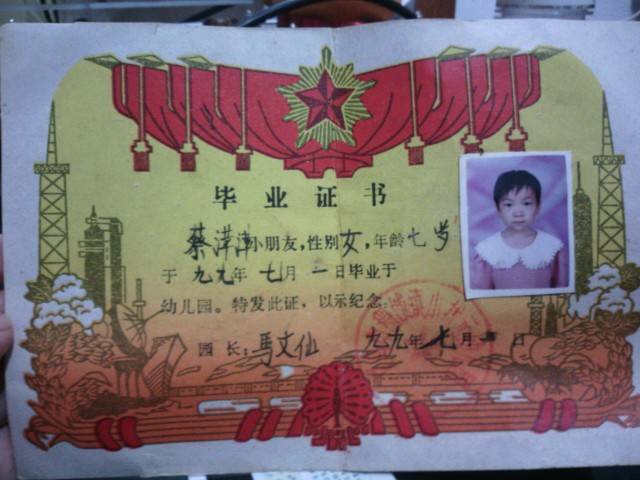 毕业证书
蔡萍萍小朋友，性别女，年龄七岁
于九九年七月一日毕业于
幼儿园。特发此证，以示纪念。
园长：马文仙 九九年七月 日